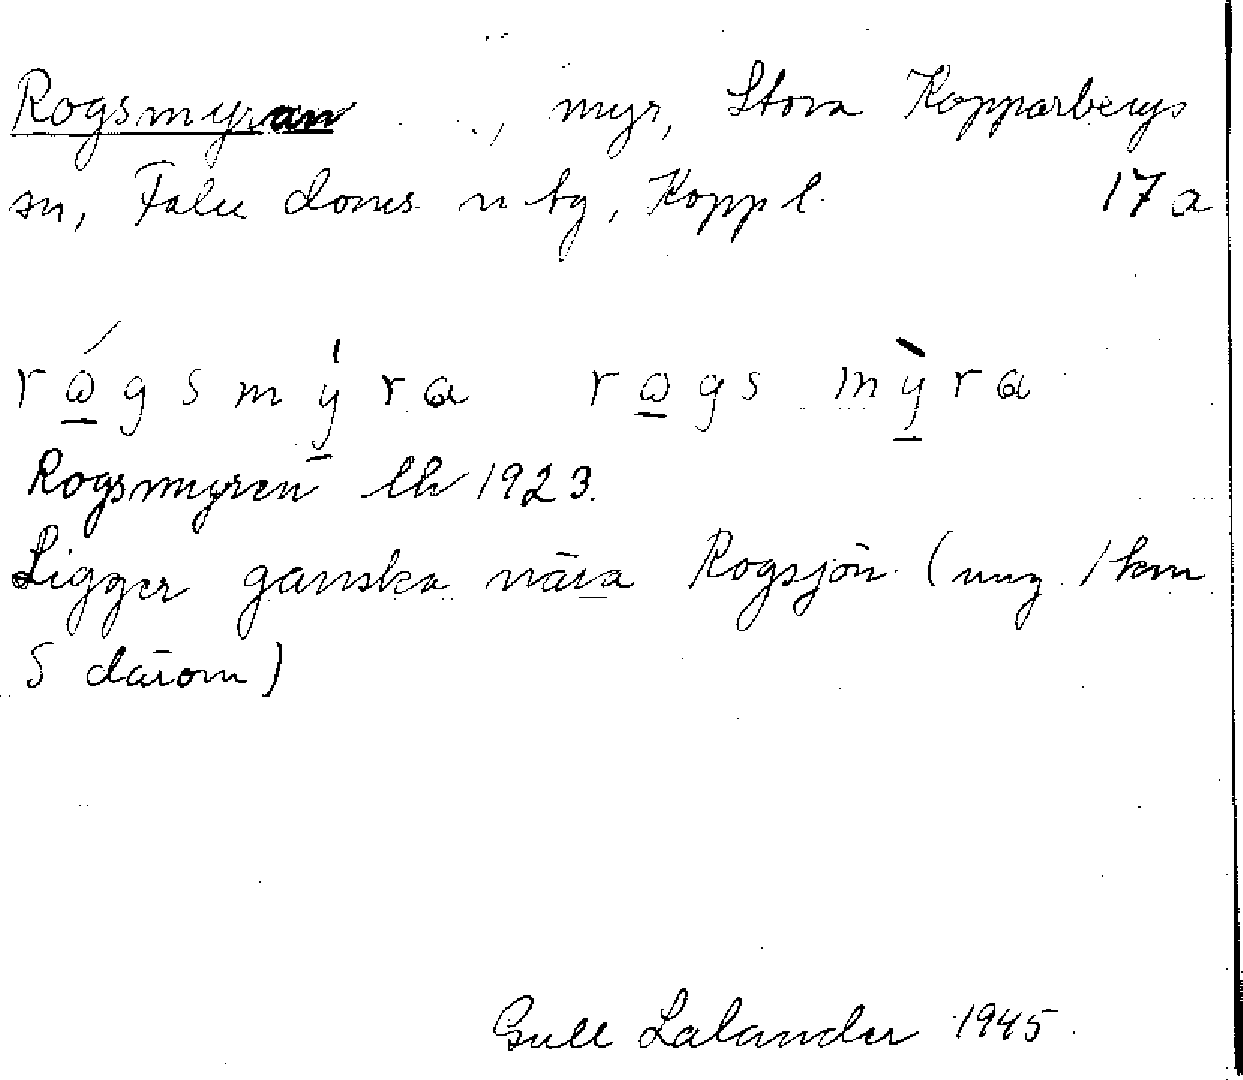 Rogsmyran , myr, Stora Kopparbergs
sn, Falu doms n tg, Kopp l. 17 a
rógsmýra rogs mỳra
Rogsmyren lh 1923.
Ligger ganska nära Rogsjön (ung. 1 km
S därom)
Gull Lalander 1945.